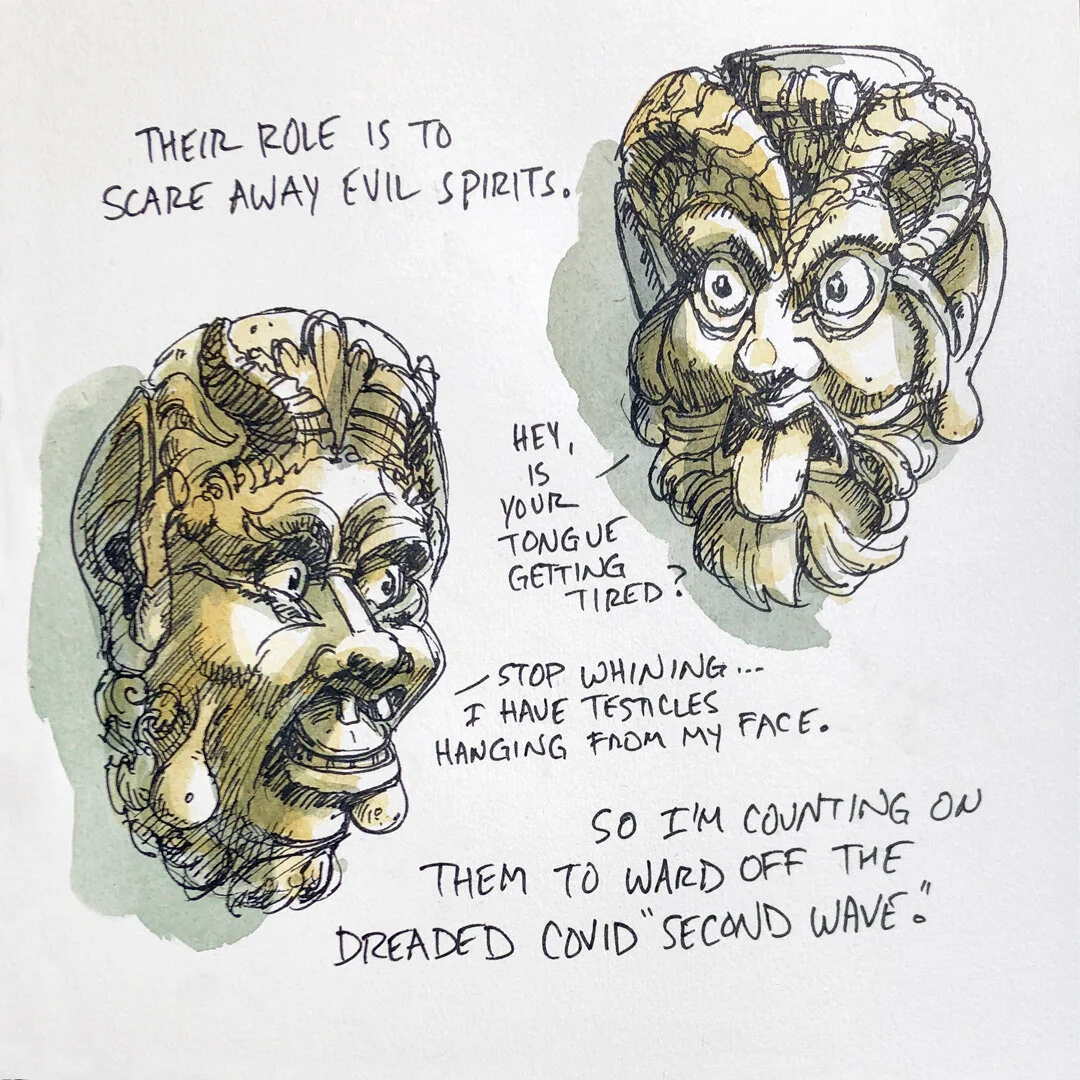 THEIR ROLE IS TO
SCARE AWAY EVIL SPIRITS.
HEY,
IS
YOUR
TONGUE
GETTING
TIRED?
STOP WHINING...
I HAVE TESTICLES
HANGING FROM MY FACE.
SO I'M COUNTING ON
THEM TO WARD OFF THE
DREADED COVID "SECOND WAVE."